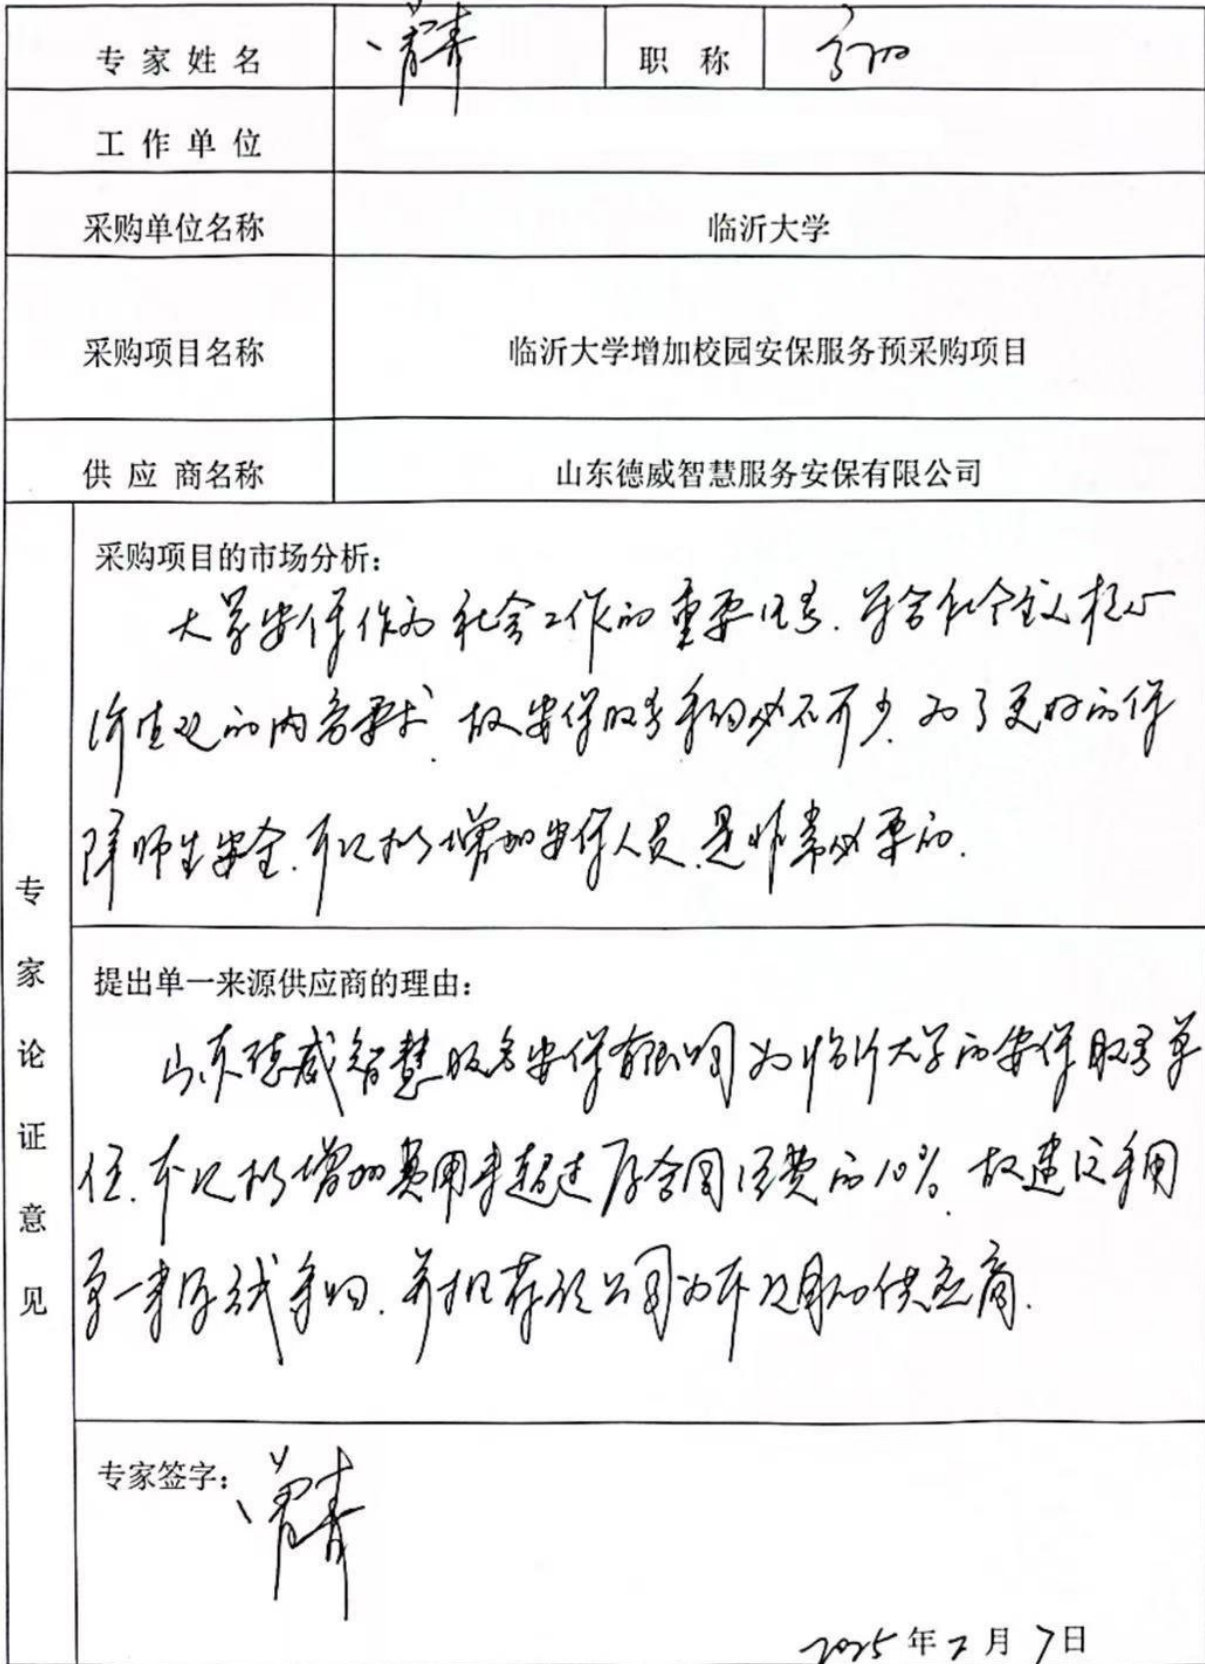 专家姓名 职称
工作单位
采购单位名称 临沂大学
采购项目名称 临沂大学增加校园安保服务预采购项目
供应商名称 山东德威智慧服务安保有限公司
专家论证意见
采购项目的市场分析：
大学安保作为社会工作的重要任务.符合社会主义核心
价值观的内容要求.故安保服务采购必不可少.为了更好的保
障师生安全.本次拟增加安保人员.是非常必要的.
提出单一来源供应商的理由：
山东德威智慧服务安保有限公司为临沂大学的安保服务单
位.本次拟增加费用未超过原合同经费的10%.故建议采用
单一来源式采购.并推荐该公司为本项目的供应商.
专家签字：
2025年2月7日